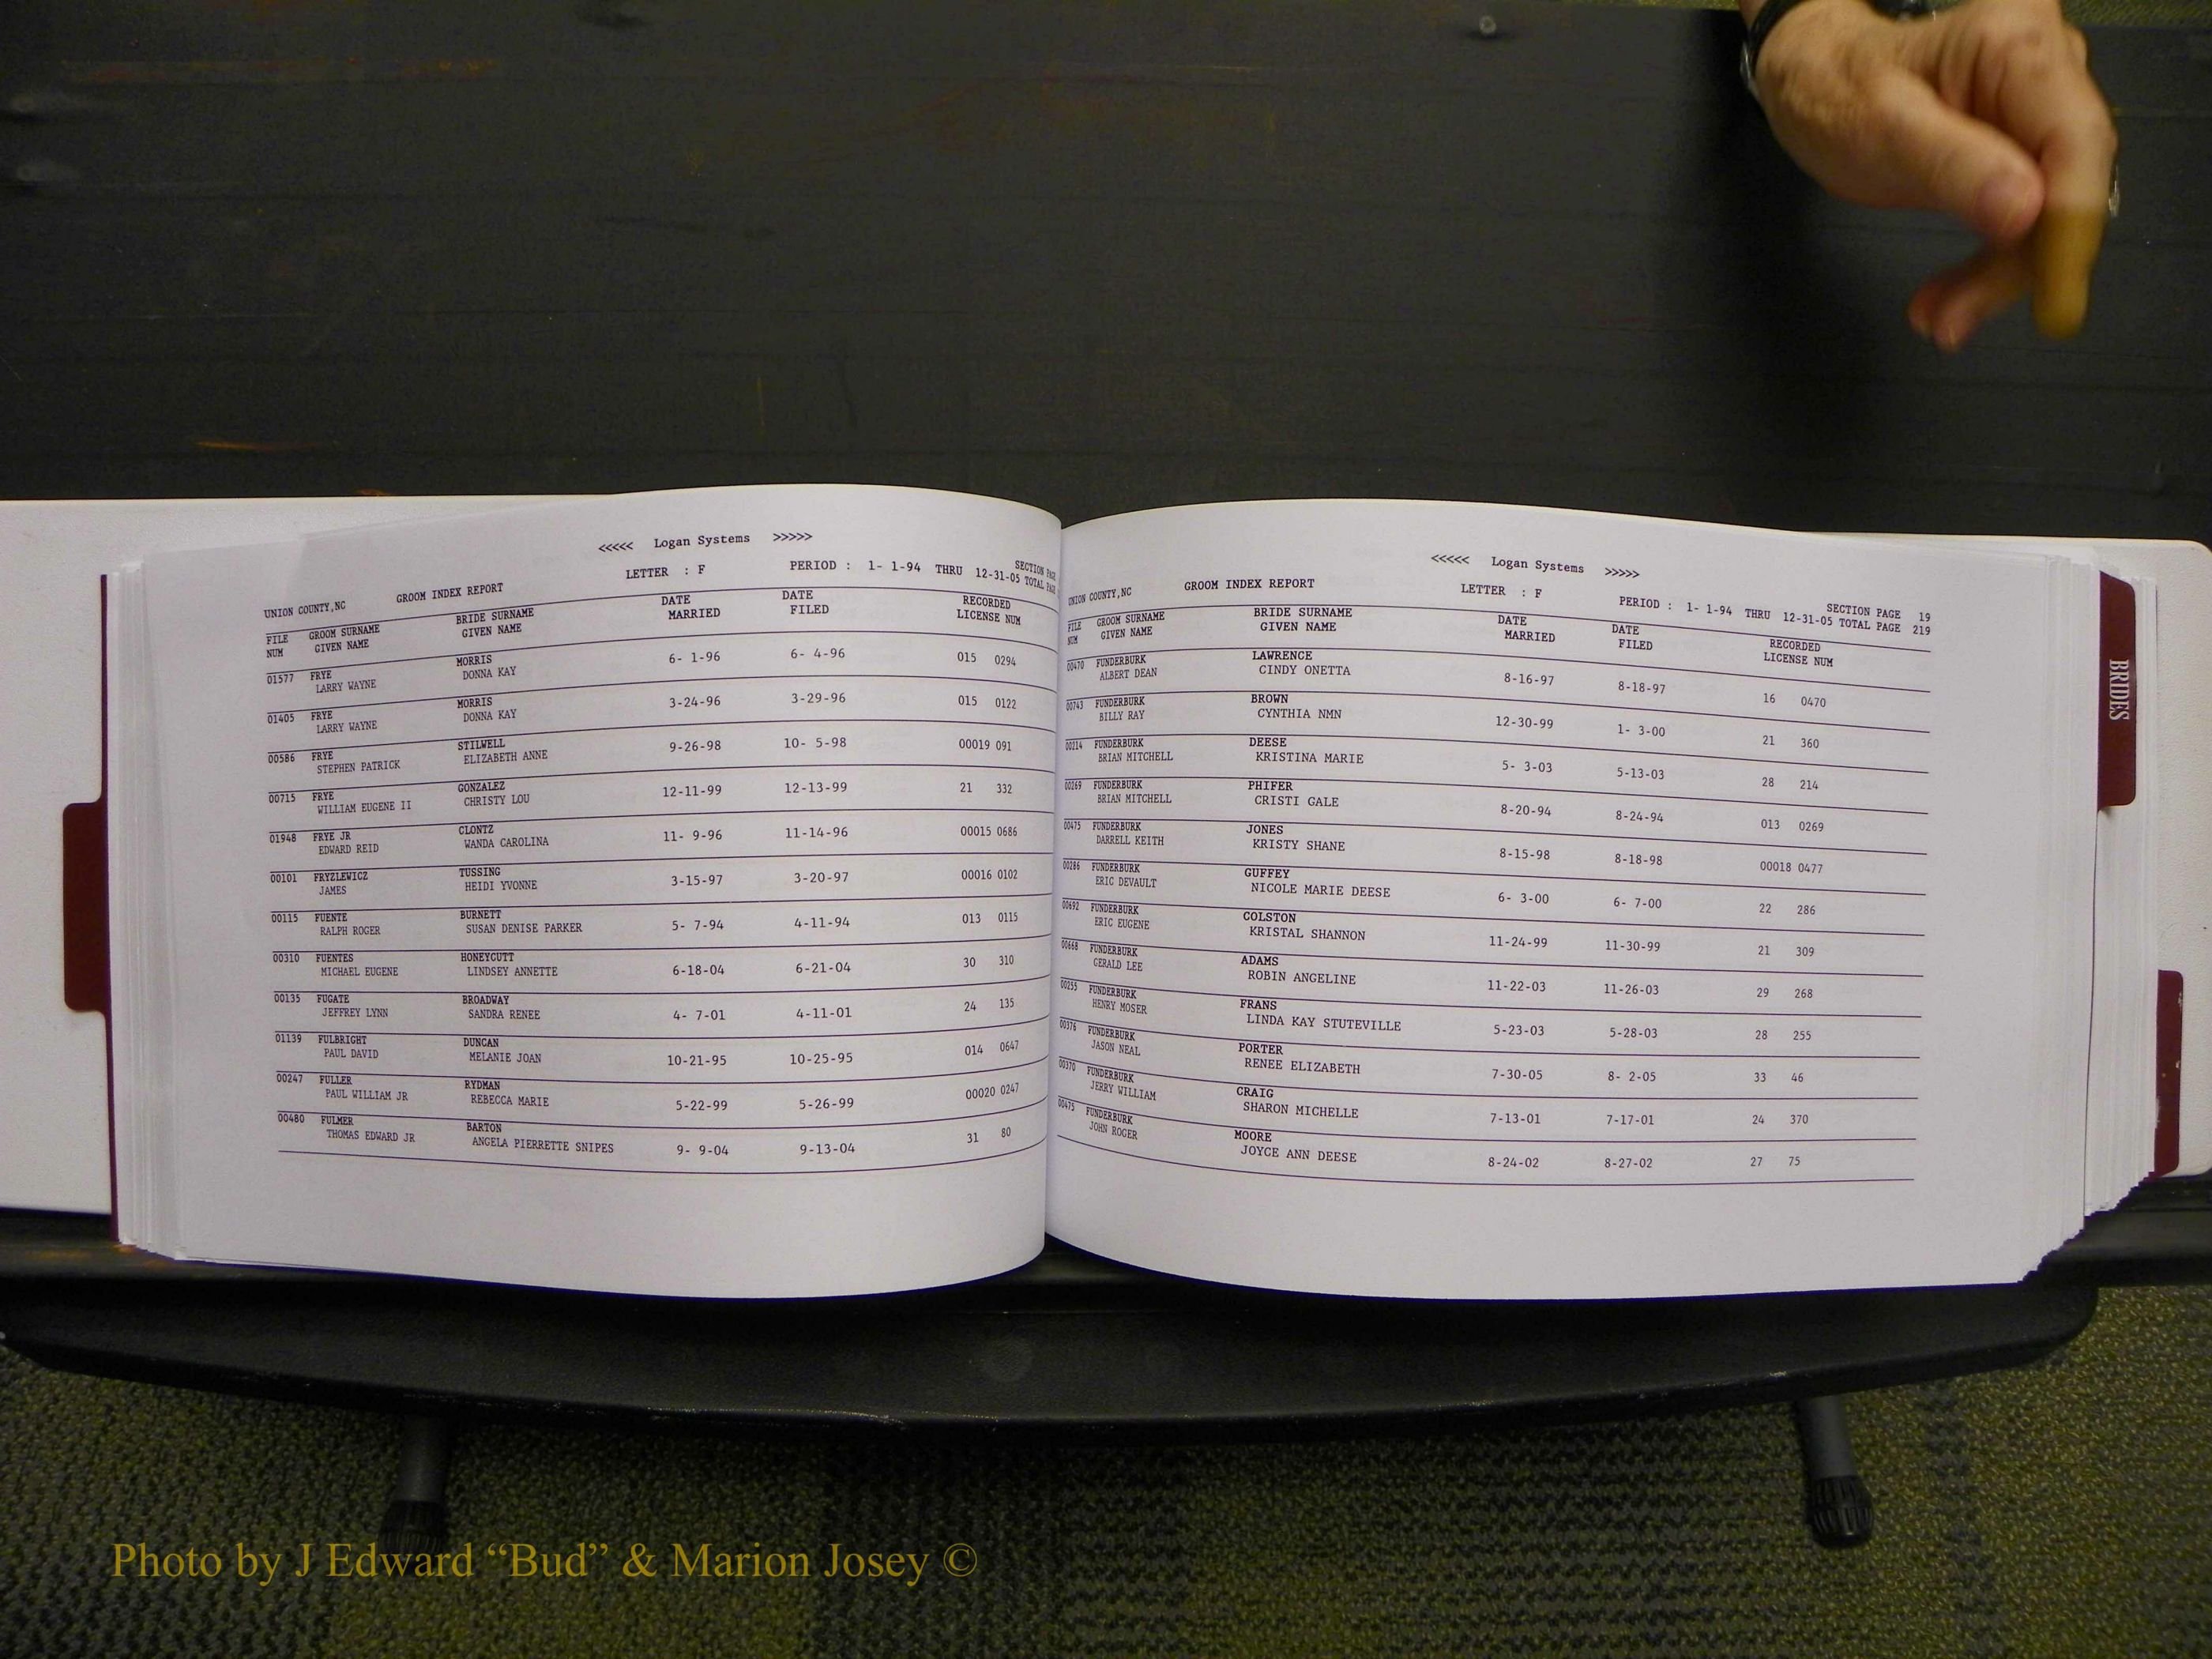 <<<<< Logan Systems >>>>>
UNION COUNTY,NC GROOM INDEX REPORT LETTER : F PERIOD : 1- 1-94 THRU 12-31-05 SECTION
TOTAL
FILE NUM GROOM SURNAME GIVEN NAME BRIDE SURNAME GIVEN NAME DATE MARRIED DATE FILED RECORDED LICENSE NUM
01577 FRYE MORRIS 6- 1-96 6- 4-96 015 0294
LARRY WAYNE DONNA KAY
01405 FRYE MORRIS 3-24-96 3-29-96 015 0122
LARRY WAYNE DONNA KAY
00586 FRYE STILWELL 9-26-98 10- 5-98 00019 091
STEPHEN PATRICK ELIZABETH ANNE
00715 FRYE GONZALEZ 12-11-99 12-13-99 21 332
WILLIAM EUGENE II CHRISTY LOU
01948 FRYE JR CLONTZ 11- 9-96 11-14-96 00015 0686
EDWARD REID WANDA CAROLINA
00101 FRYZLEWICZ TUSSING 3-15-97 3-20-97 00016 0102
JAMES HEIDI YVONNE
00115 FUENTE BURNETT 5- 7-94 4-11-94 013 0115
RALPH ROGER SUSAN DENISE PARKER
00310 FUENTES HONEYCUTT 6-18-04 6-21-04 30 310
MICHAEL EUGENE LINDSEY ANNETTE
00135 FUGATE BROADWAY 4- 7-01 4-11-01 24 135
JEFFREY LYNN SANDRA RENEE
01139 FULBRIGHT DUNCAN 10-21-95 10-25-95 014 0647
PAUL DAVID MELANIE JOAN
00247 FULLER RYDMAN 5-22-99 5-26-99 00020 0247
PAUL WILLIAM JR REBECCA MARIE
00480 FULMER BARTON 9- 9-04 9-13-04 31 80
THOMAS EDWARD JR ANGELA PIERRETTE SNIPES
<<<<< Logan Systems >>>>>
UNION COUNTY,NC GROOM INDEX REPORT LETTER : F PERIOD : 1- 1-94 THRU 12-31-05 SECTION PAGE 19
TOTAL PAGE 219
FILE NUM GROOM SURNAME GIVEN NAME BRIDE SURNAME GIVEN NAME DATE MARRIED DATE FILED RECORDED LICENSE NUM
00470 FUNDERBURK LAWRENCE 8-16-97 8-18-97 16 0470
ALBERT DEAN CINDY ONETTA
00743 FUNDERBURK BROWN 12-30-99 1- 3-00 21 360
BILLY RAY CYNTHIA NMN
00214 FUNDERBURK DEESE 5- 3-03 5-13-03 28 214
BRIAN MITCHELL KRISTINA MARIE
00269 FUNDERBURK PHIFER 8-20-94 8-24-94 013 0269
BRIAN MITCHELL CRISTI GALE
00475 FUNDERBURK JONES 8-15-98 8-18-98 00018 0477
DARRELL KEITH KRISTY SHANE
00286 FUNDERBURK GUFFEY 6- 3-00 6- 7-00 22 286
ERIC DEVAULT NICOLE MARIE DEESE
00692 FUNDERBURK COLSTON 11-24-99 11-30-99 21 309
ERIC EUGENE KRISTAL SHANNON
00668 FUNDERBURK ADAMS 11-22-03 11-26-03 29 268
GERALD LEE ROBIN ANGELINE
00255 FUNDERBURK FRANS 5-23-03 5-28-03 28 255
HENRY MOSER LINDA KAY STUTEVILLE
00376 FUNDERBURK PORTER 7-30-05 8- 2-05 33 46
JASON NEAL RENEE ELIZABETH
00370 FUNDERBURK CRAIG 7-13-01 7-17-01 24 370
JERRY WILLIAM SHARON MICHELLE
00475 FUNDERBURK MOORE 8-24-02 8-27-02 27 75
JOHN ROGER JOYCE ANN DEESE
BRIDES
Photo by J Edward “Bud” & Marion Josey ©